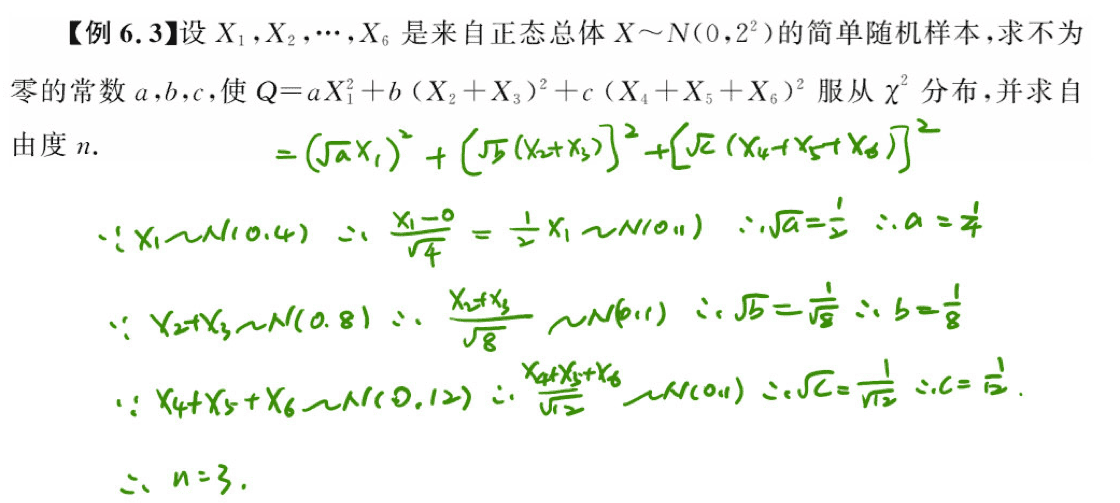 【例 6.3】设 X₁,X₂,⋯,X₆ 是来自正态总体 X～N(0,2²)的简单随机样本,求不为
零的常数 a,b,c,使 Q=aX₁²+b (X₂+X₃)²+c (X₄+X₅+X₆)² 服从 χ² 分布,并求自
由度 n.
=(√a X₁)² + [√b (X₂+X₃)]² + [√c (X₄+X₅+X₆)]²
∵ X₁～N(0.4) ∴ (X₁-0)/√4 = 1/2 X₁ ～N(0,1) ∴√a=1/2 ∴a=1/4
∵ X₂+X₃～N(0.8) ∴ (X₂+X₃)/√8 ～N(0,1) ∴√b=1/√8 ∴b=1/8
∵ X₄+X₅+X₆～N(0.12) ∴ (X₄+X₅+X₆)/√12 ～N(0,1) ∴√c=1/√12 ∴c=1/12.
∴ n=3.